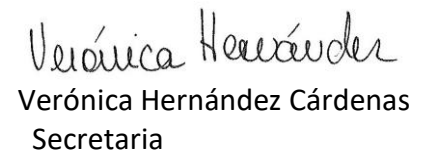 Verónica Hernández
Verónica Hernández Cárdenas
Secretaria